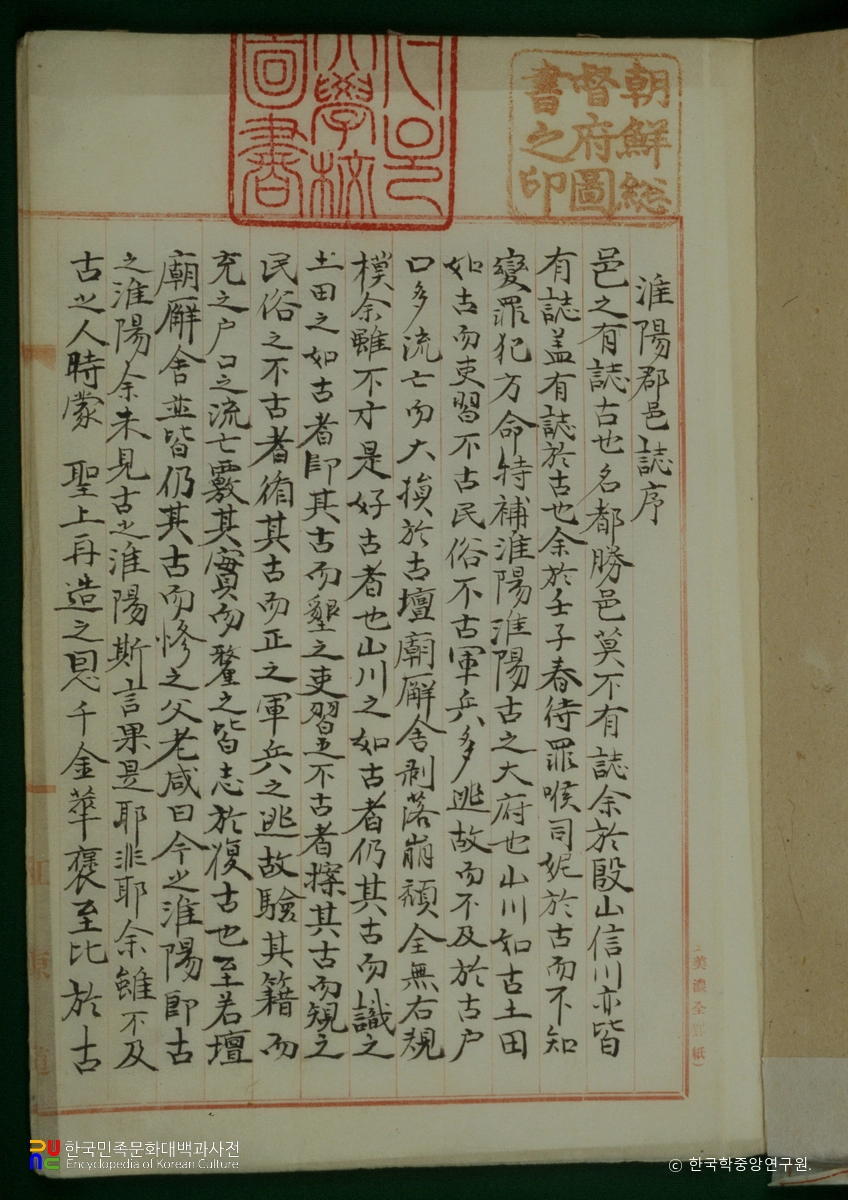 朝鮮総
督府圖
書之印
大學校
圖書
淮陽郡邑誌序
邑之有誌古也名都勝邑莫不有誌余於殷山信川亦皆
有誌盖有誌於古也余於壬子春待罪喉司妮於古而不知
變罪犯方命特補淮陽淮陽古之大府也山川如古土田
如古而吏習不古民俗不古軍兵多逃故而不及於古户
口多流亡而大損於古壇廟廨舍剥落崩頹全無右規
模余雖不才是好古者也山川之如古者仍其古而識之
土田之如古者即其古而墾之吏習之不古者擦其古而規之
民俗之不古者循其古而正之軍兵之逃故驗其籍而
充之户口之流亡覈其實而釐之皆志於復古也至若壇
廟廨舍並皆仍其古而修之父老咸曰今之淮陽即古
之淮陽余未見古之淮陽斯言果是耶非耶余雖不及
古之人時蒙 聖上再造之恩千金華褒至比於古
江原道
(美濃全罫紙)
한국민족문화대백과사전
Encyclopedia of Korean Culture
© 한국학중앙연구원.